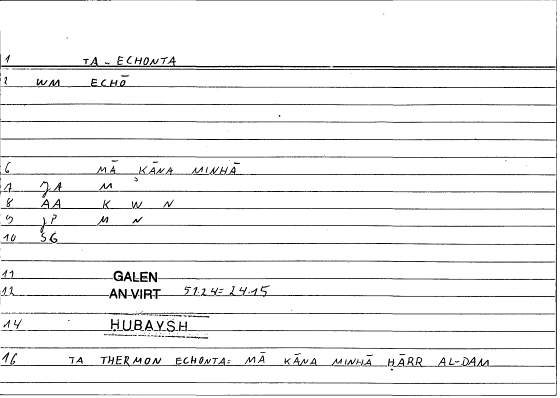 1 TA - ECHONTA
2 WM ECHŌ
6 MĀ KĀNA MINHĀ
7 JA M
8 AA K W N
9 JP M N
10 SG
11 GALEN
12 AN VIRT 51.24= 24.15
14 HUBAYSH
16 TA THERMON ECHONTA= MĀ KĀNA MINHĀ ḤĀRR AL-DAM